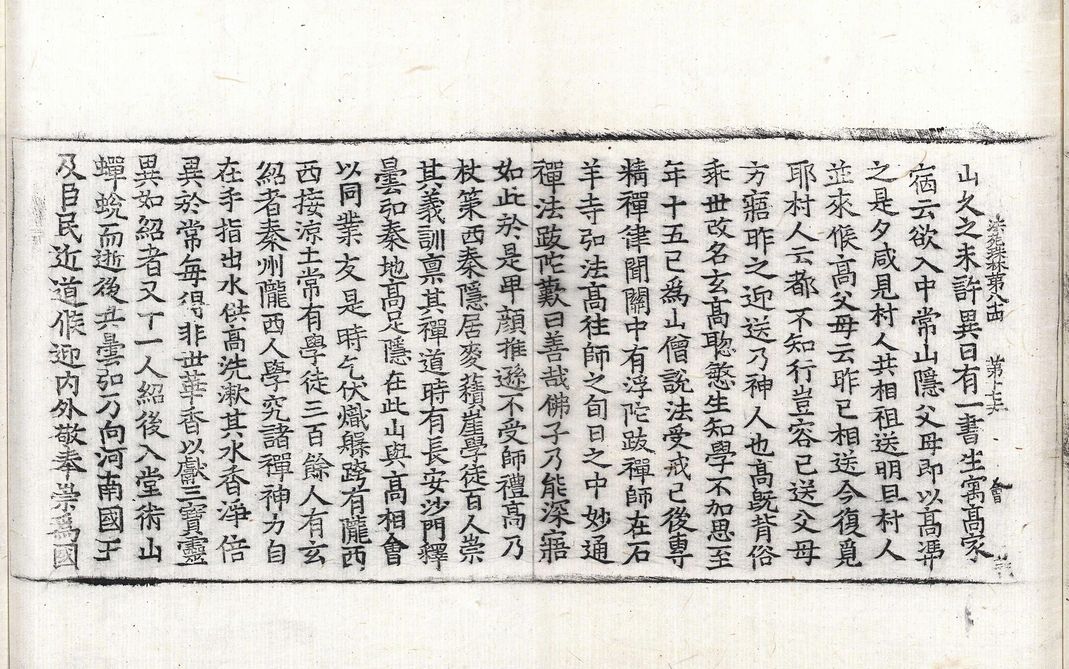 山久之未許異日有一書生寓高家
宿云欲入中常山隱父母即以高馮
之是夕咸見村人共相祖送明旦村人
並來候高父母云昨已相送今復覓
耶村人云都不知行豈容已送父母
方寤昨之迎送乃神人也高旣背俗
乖世改名玄高聡慜生知學不加思至
年十五已爲山僧說法受戒已後專
精禪律聞關中有浮陀跋禪師在石
羊寺弘法高往師之旬日之中妙通
禪法跋陀歎曰善哉佛子乃能深寤
如此於是卑顔推遜不受師禮高乃
杖策西秦隱居麥積崖學徒百人崇
其義訓禀其禪道時有長安沙門釋
曇弘秦地高足隱在此山與高相會
以同業友是時乞伏熾槃跨有隴西
西接涼土常有學徒三百餘人有玄
紹者秦州隴西人學究諸禪神力自
在手指出水供高洗漱其水香淨倍
異於常每得非世華香以獻三寶靈
異如紹者又丁一人紹後入堂術山
蟬蛻而逝後其曇弘乃向河南國王
及臣民近道候迎內外敬奉崇爲國